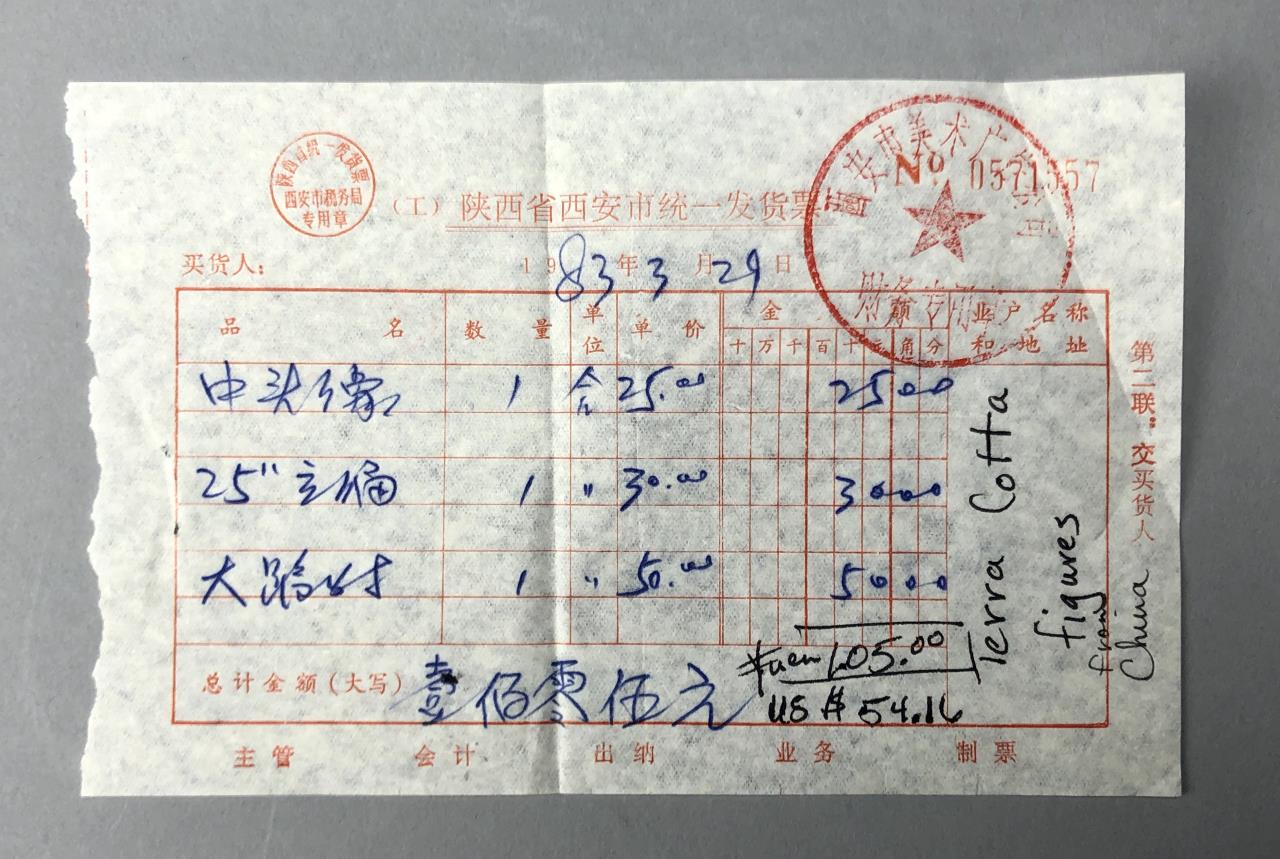 陕西省统一发货票
西安市税务局
专用章
(工) 陕西省西安市统一发货票
西安市美术广
No 0571557
财务专用
买货人:
1983年3月29日
品名 数量 单位 单价 金额 业户名称和地址
十万千百十元角分
中头像 1 合 25.00 2500
25" 1 " 30.00 3000
大 1 " 50.00 5000
总计金额(大写) 壹佰零伍元
Yuen 105.00
US $ 54.16
Terra Cotta
figures
from
China
第二联:交买货人
主管 会计 出纳 业务 制票